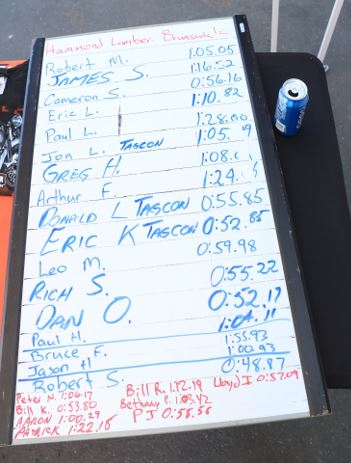 Hammond Lumber Brunswick
Robert M. 1:05.05
JAMES S. 1:16.52
Cameron S. 0:56.16
Eric L. 1:10.82
Paul L. 1:28.00
Jon L. TASCON 1:05.19
GREG H. 1:08.
Arthur F. 1:24.
DONALD L TASCON 0:55.85
ERIC K TASCON 0:52.85
Leo M. 0:59.98
RICH S. 0:55.22
DAN O. 0:52.17
Paul H. 1:04.11
Bruce F. 1:55.93
Jason H 1:00.93
Robert S. 0:48.87
Peter N. 1:06.17 Bill R. 1:12.19 Lloyd I 0:57.09
Bill K. 0:53.80 Bethany P. 1:03.42
AARON 1:00.29 PJ 0:58.56
PATRICK 1:22.15